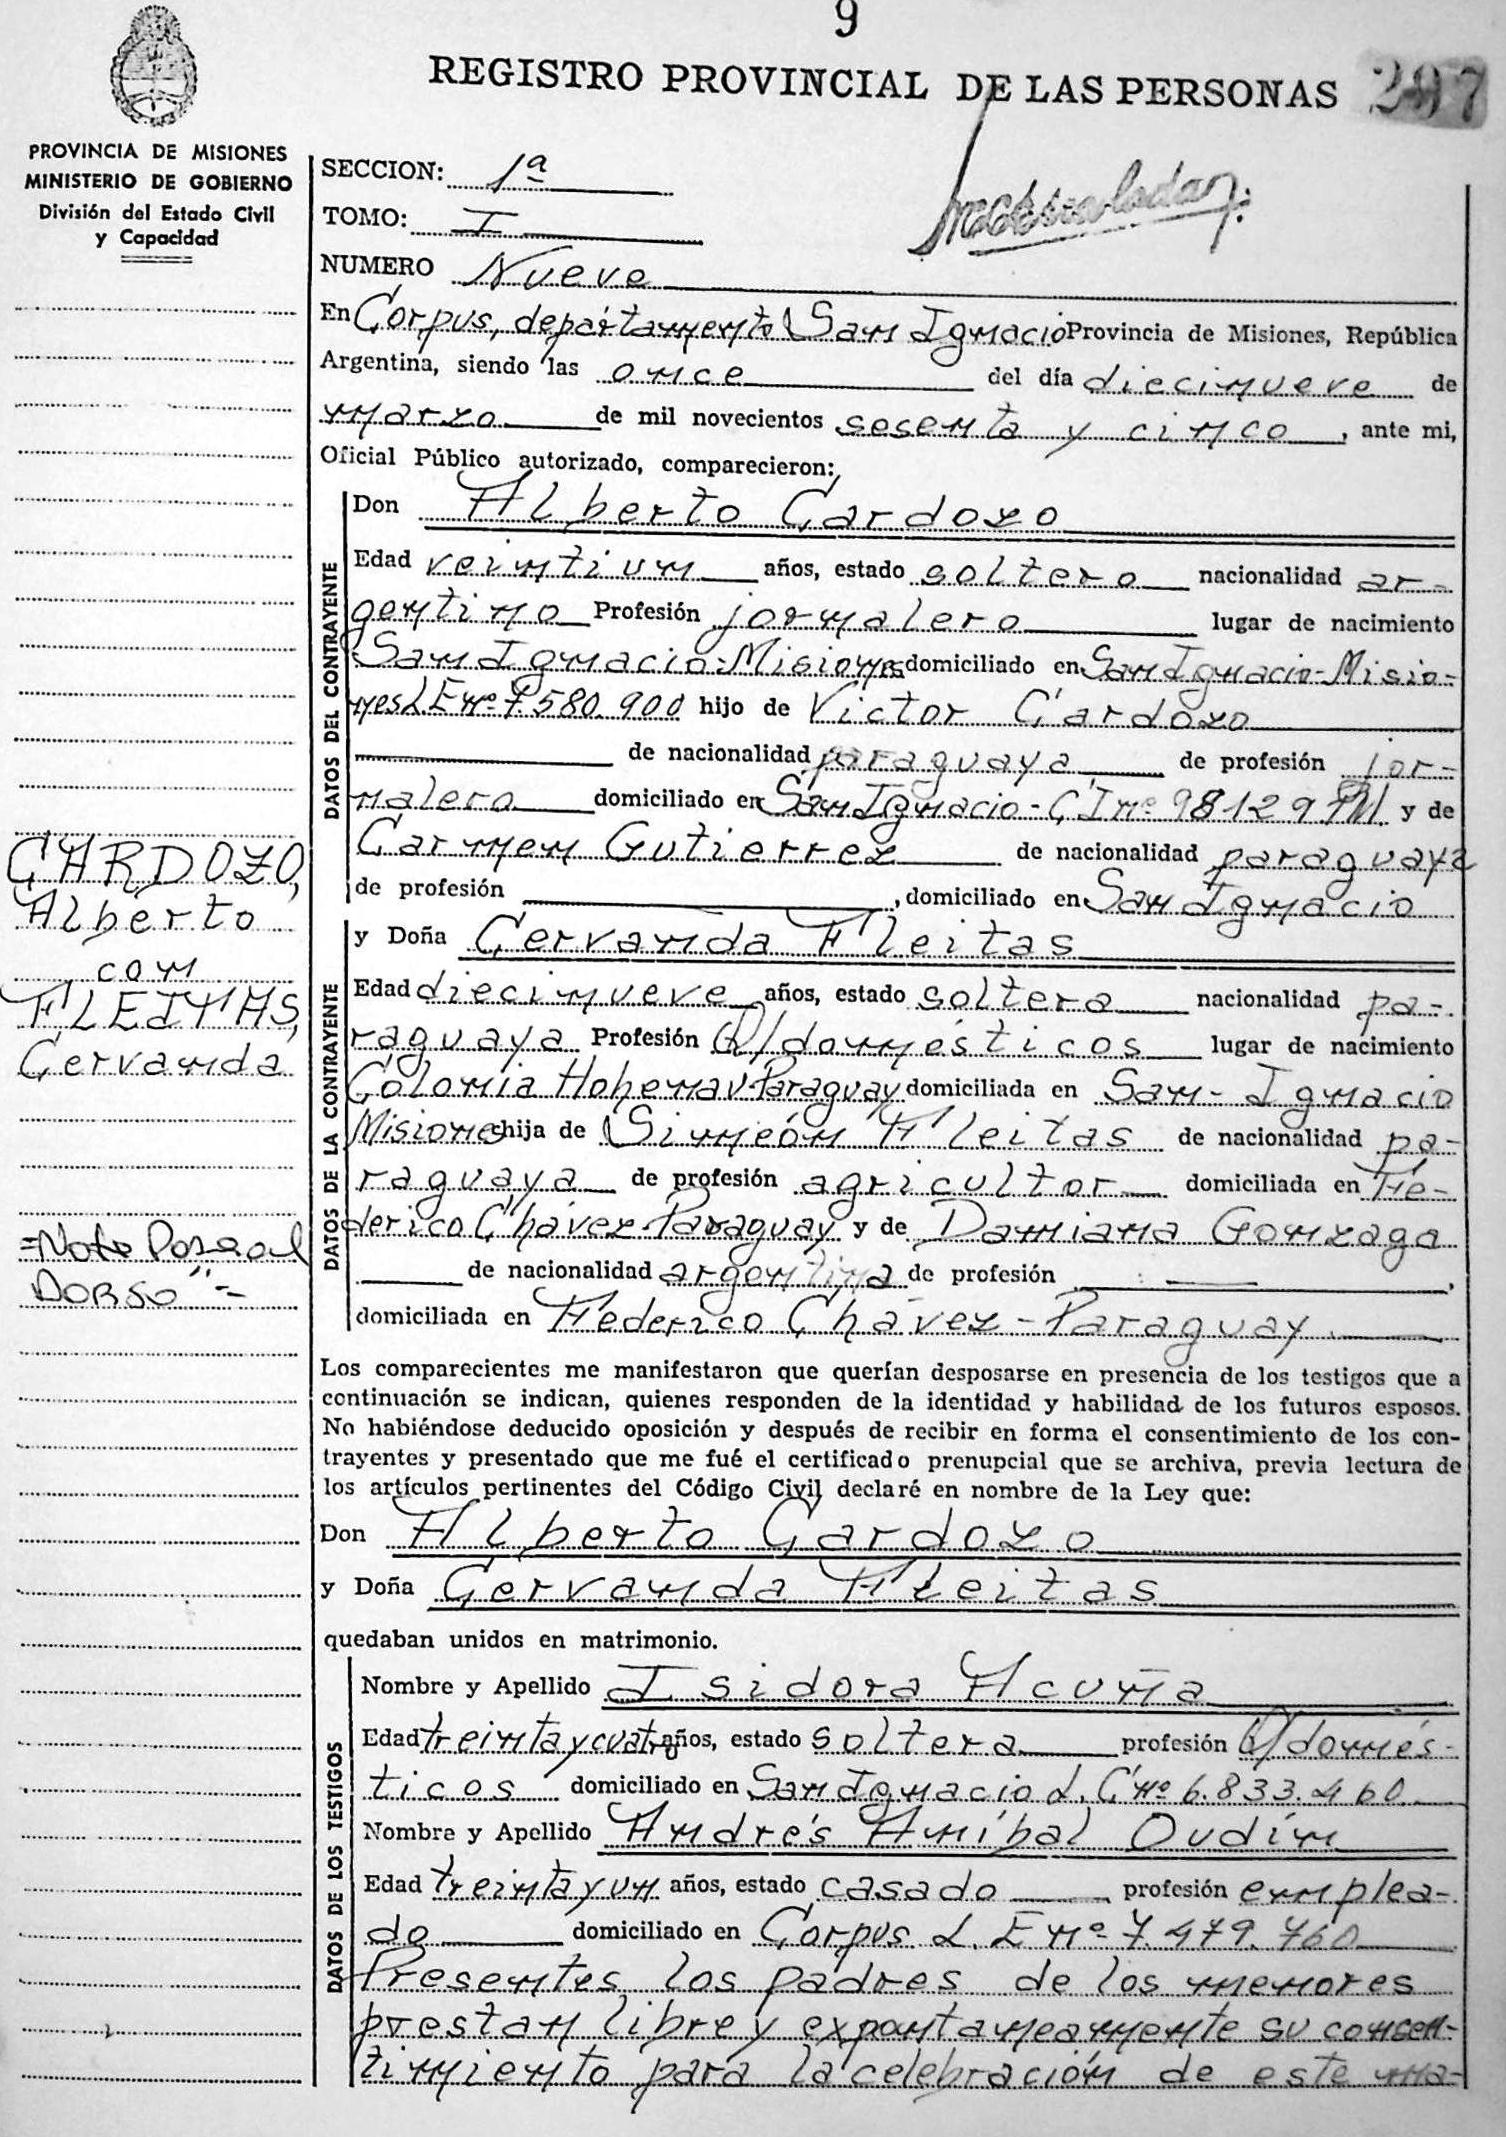 9
REGISTRO PROVINCIAL DE LAS PERSONAS 297
PROVINCIA DE MISIONES
MINISTERIO DE GOBIERNO
División del Estado Civil
y Capacidad
SECCION: 1ª
TOMO: I
NUMERO Nueve
En Corpus, departamento San Ignacio Provincia de Misiones, República
Argentina, siendo las once del día diecinueve de
marzo de mil novecientos sesenta y cinco, ante mi,
Oficial Público autorizado, comparecieron:
DATOS DEL CONTRAYENTE
Don Alberto Cardozo
Edad veintiun años, estado soltero nacionalidad ar-
gentino Profesión jornalero lugar de nacimiento
San Ignacio-Misiones domiciliado en San Ignacio-Misio-
nes L E nº 7.580.900 hijo de Victor Cardozo
de nacionalidad paraguaya de profesión jor-
nalero domiciliado en San Ignacio - C I nº 98129 y de
Carmen Gutierrez de nacionalidad paraguaya
de profesión , domiciliado en San Ignacio
CARDOZO,
Alberto
con
FLEITAS,
Cervanda
=Nota Pase al
DORSO"=
DATOS DE LA CONTRAYENTE
y Doña Cervanda Fleitas
Edad diecinueve años, estado soltera nacionalidad pa-
raguaya Profesión Q/domésticos lugar de nacimiento
Colonia Hohenau-Paraguay domiciliada en San-Ignacio
Misiones hija de Simeón Fleitas de nacionalidad pa-
raguaya de profesión agricultor domiciliada en Fe-
derico Chávez-Paraguay y de Damiana Gonzaga
de nacionalidad argentina de profesión ,
domiciliada en Federico Chávez-Paraguay
Los comparecientes me manifestaron que querían desposarse en presencia de los testigos que a
continuación se indican, quienes responden de la identidad y habilidad de los futuros esposos.
No habiéndose deducido oposición y después de recibir en forma el consentimiento de los con-
trayentes y presentado que me fué el certificado prenupcial que se archiva, previa lectura de
los artículos pertinentes del Código Civil declaré en nombre de la Ley que:
Don Alberto Cardozo
y Doña Cervanda Fleitas
quedaban unidos en matrimonio.
DATOS DE LOS TESTIGOS
Nombre y Apellido Isidora Acuña
Edad treinta y cuatro años, estado soltera profesión Q/domés-
ticos domiciliado en San Ignacio L. C nº 6.833.460
Nombre y Apellido Andrés Aníbal Oudín
Edad treinta y un años, estado casado profesión emplea-
do domiciliado en Corpus L. E nº 7.479.760
Presentes los padres de los menores
prestan libre y expontaneamente su consen-
timiento para la celebración de este ma-